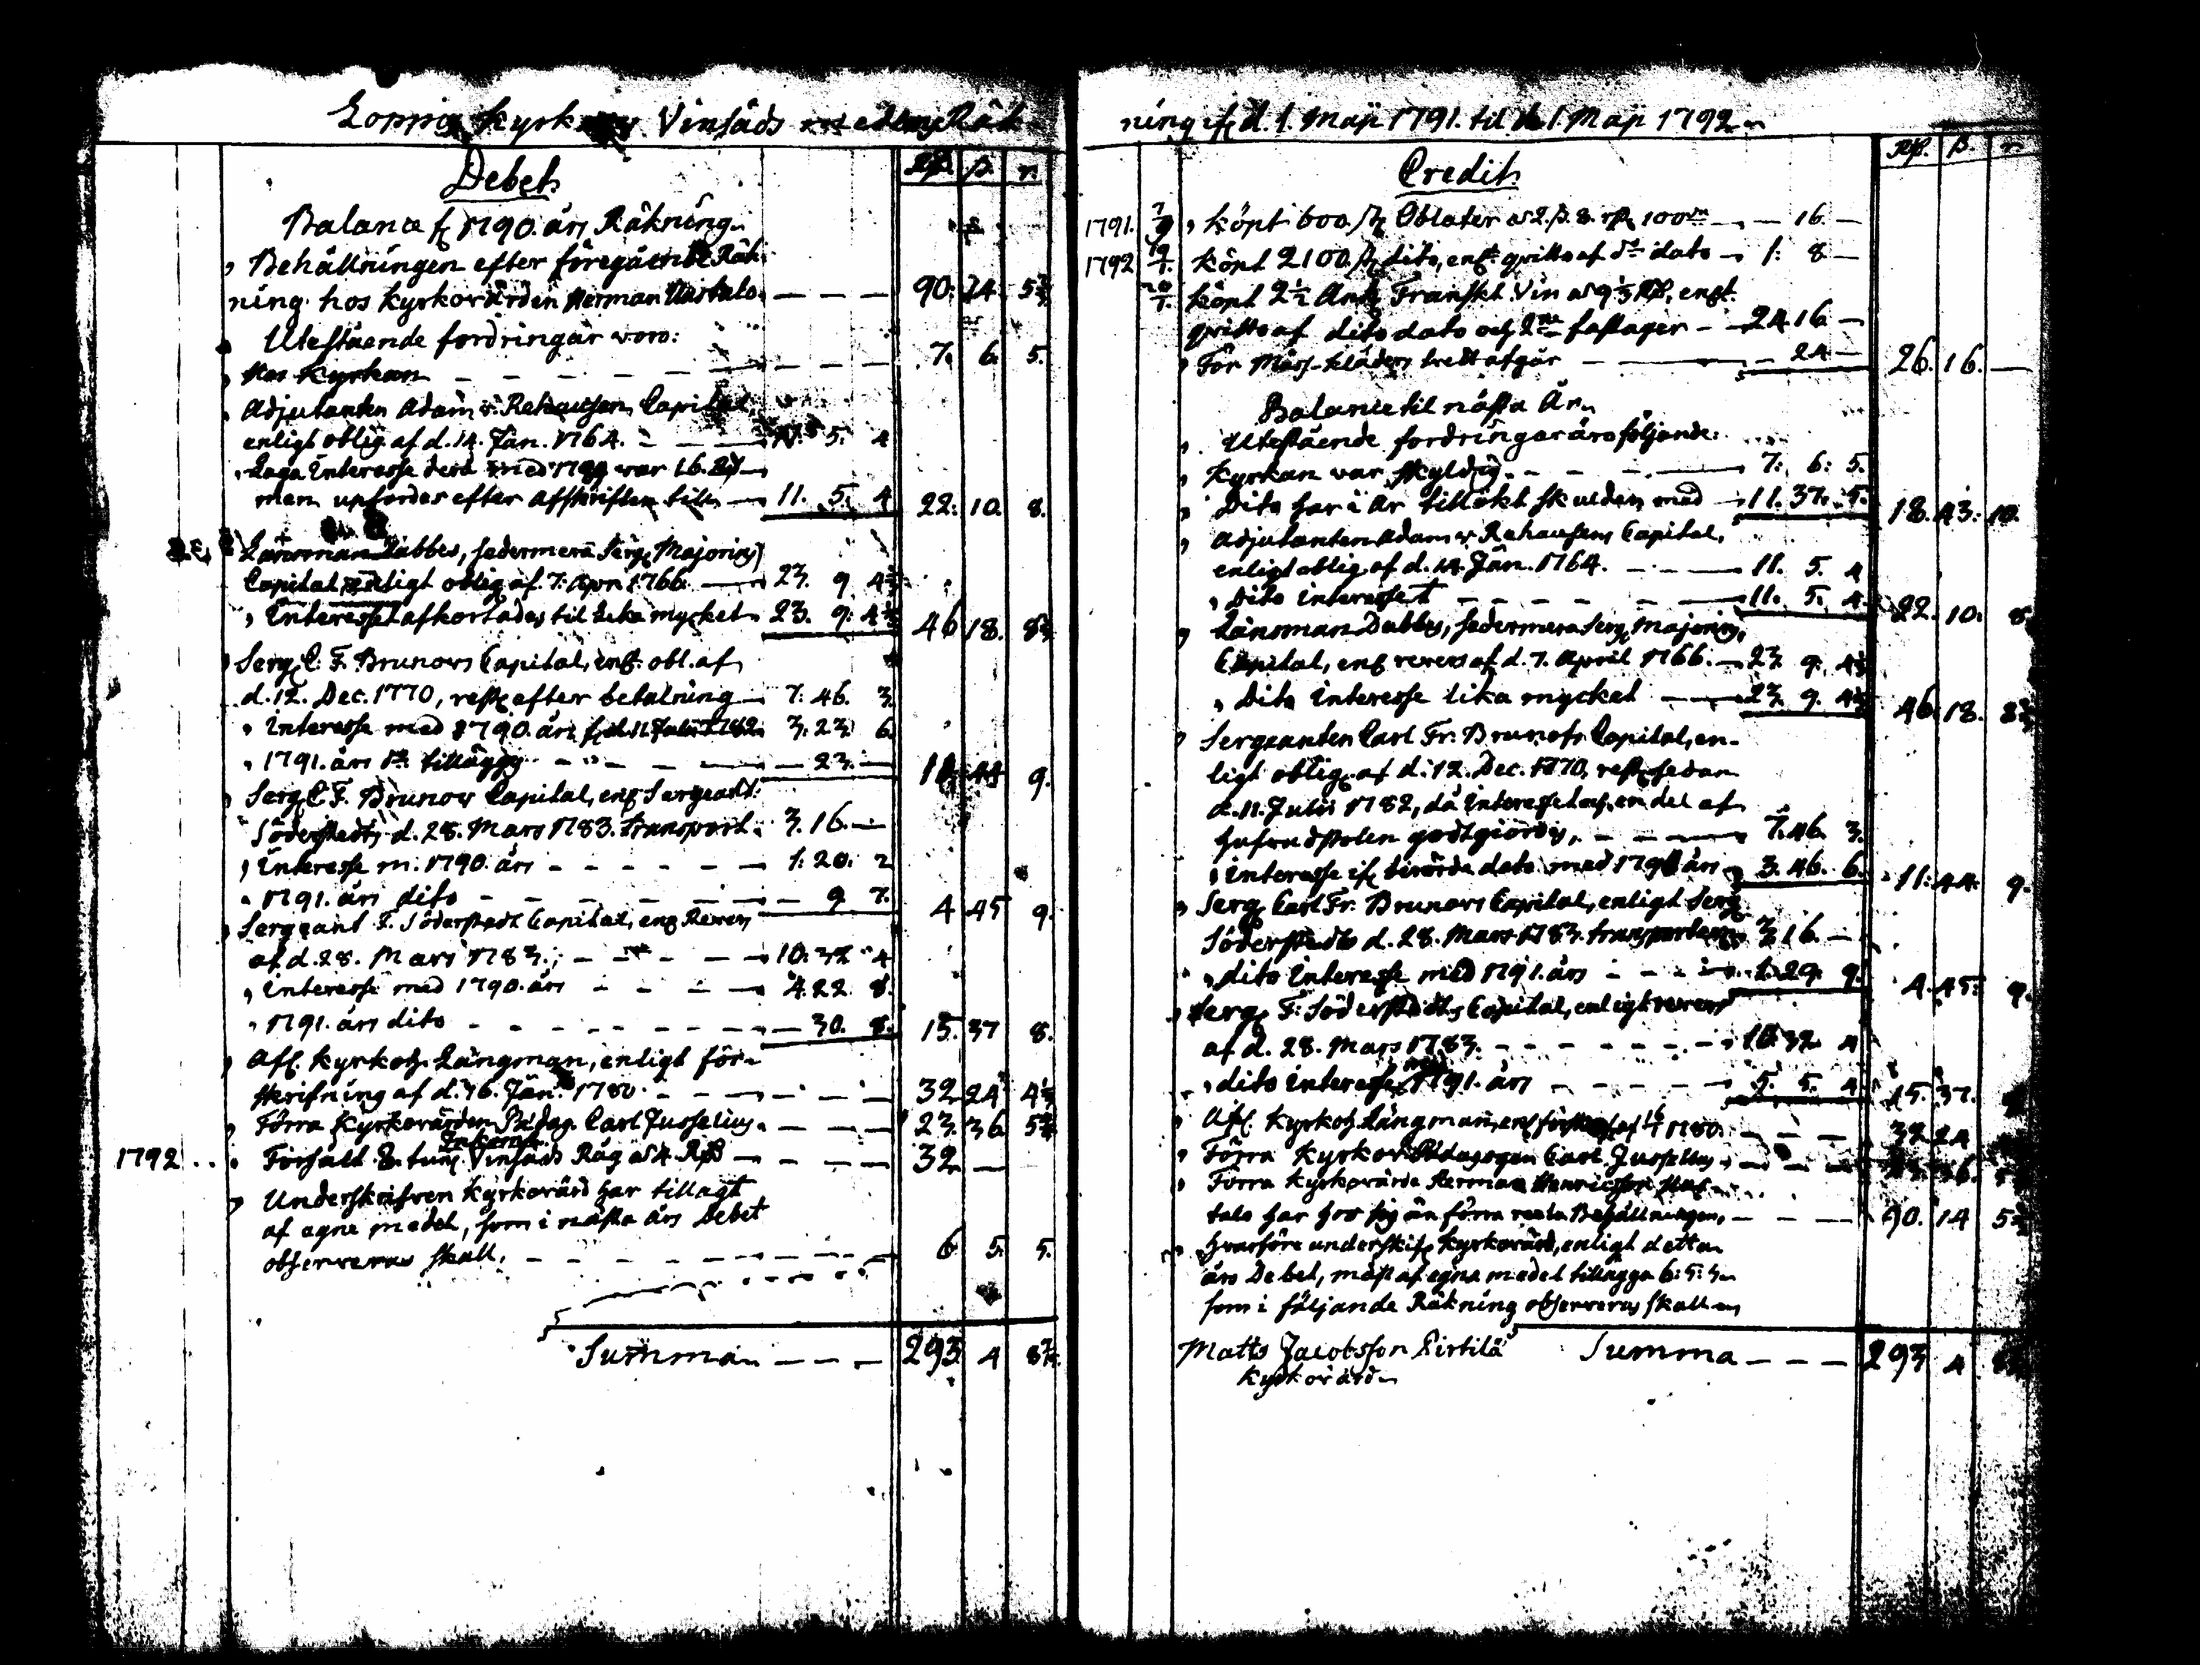 Loppis Kyrkos Vinsäds medlens Räk
Debet.
Rdr. ß. r.
Balance f 1790. års Räkning.
Behållningen efter föregående Räk
ning hos kyrkovärden Herman Hustalo. — — — 90. 24. 5
Utestående fordringar voro:
Hos Kyrkan — — — — — 7. 6. 5.
Adjutanten Adam v. Rehausens Capital,
enligt oblig af d. 14. Jan. 1764. — — — 11. 5. 4
Laga Interesse derå med 1790 war 16.
men upfördes efter Afskriften till — 11. 5. 4 22. 10. 8.
Länsman Dabbes, sedermera Serg. Majorins
Capital enligt oblig af 7. Apr. 1766. — 23. 9. 4
Interesset afkortades til lika mycket 23. 9. 4 46 18. 8
Serg. C. F. Brunows Capital, enl. obl. af
d. 12. Dec. 1770, rest. efter betalning — 7. 46. 3
Interesse med 1790. års f. d. 11 Julii 1782. 3. 23. 6.
1791. års do tillägges — — — 23. — 11. 44 9.
Serg. C. F. Brunows Capital, enl Sergeant
Söderstedts d. 28. Mars 1783. transport. 3. 16. —
Interesse m. 1790. års — — — — — 1. 20. 2
1791. års dito — — — — — 9 7. 4 45 9.
Sergeant F. Söderstedt Capital, enl Revers
af d. 28. Mars 1783., — — — 10. 32 4
Interesse med 1790. års — — — 4. 22 8.
1791. års dito — — — — — 30. 8. 15. 37 8.
Afl. Kyrkoh. Längman, enligt för-
skrifning af d. 16. Jan. 1780. — — — 32 24 4
Förra Kyrkovärden Pædag. Carl Jusselius. — — — 23. 36 5
1792 . . Försält 8. tunr Vinsäds Råg a 4. Rdr — — — 32 —
Underskrifven Kyrkovärd har tillagt
af egne medel, som i nästa års Debet
observeras skall. — — — — 6 5. 5.
Summa — — — 293 4 8
ning ifr. d. 1. Maji 1791. til d. 1. Maji 1792.
Credit.
Rdr. ß. r.
1791. köpt 600. st Oblater a 2. ß. 8. r 100 — — 16. —
1792 19/1. köpt 2100. st dito, enl. qvitto af do dato — 1. 8 —
20/1. köpt 2 1/2 Ank. Franskt Vin a 9 1/3 Rdr. enl.
qvitto af dito dato och 2ne fastager — 24 16 —
För Mäss-kläders tvätt afgår — — 24 — 26. 16. —
Balance til nästa År.
Utestående fordringar äro följande:
Kyrkan war skyldig. — — — 7. 6. 5.
Dito har i år tillökt skulden med — 11. 37. 5. 18. 43. 10.
Adjutanten Adam v. Rehausens Capital,
enligt oblig. af d. 14. Jan. 1764. — — — 11. 5. 4
Dito interesset — — — — — 11. 5. 4. 22. 10. 8.
Länsman Dabbes, sedermera Serg. Majorins,
Capital, enl revers af d. 7. April 1766. — 23 9. 4
Dito Interesse lika mycket — — 23 9. 4 46 18. 8
Sergeanten Carl Fr. Brunofs Capital, en-
ligt oblig. af d. 12. Dec. 1770, rest. sedan
d. 11. Julii 1782, då interesset och en del af
hufvudstolen godtgiordes, — — — 7. 46. 3.
Interesse ifr. berörde dato med 1791 års 3. 46. 6. 11. 44. 9.
Serg. Carl Fr. Brunows Capital, enligt Serg.
Söderstedts d. 28. Mars 1783. transporten 3 16. —
dito Interesse med 1791. års — — — 1. 29. 9. 4. 45. 9.
Serg. F. Söderstedts Capital, enligt revers
af d. 28. Mars 1783. — — — — — 10. 32. 4
dito interesse med 1791. års — — — — 5. 5. 4 15. 37.
Afl. Kyrkoh. Längman, enl af 16/1 1780. — — — 32 24
Förra Kyrkov Pædagogen Carl Jusselius. — — — 36.
Förra kyrkovärden Herman Henricsson Hus-
talo har hos sig än förra restr Behållningen, — — — 90. 14 5
hvarföre underskrif. Kyrkovärd, enligt detta
års Debet, måst af egna medel tillägga 6: 5: 5.
som i följande Räkning observeras skall
Matts Jacobsson Pirtilä Summa — — — 293 4
kyrkovärd.